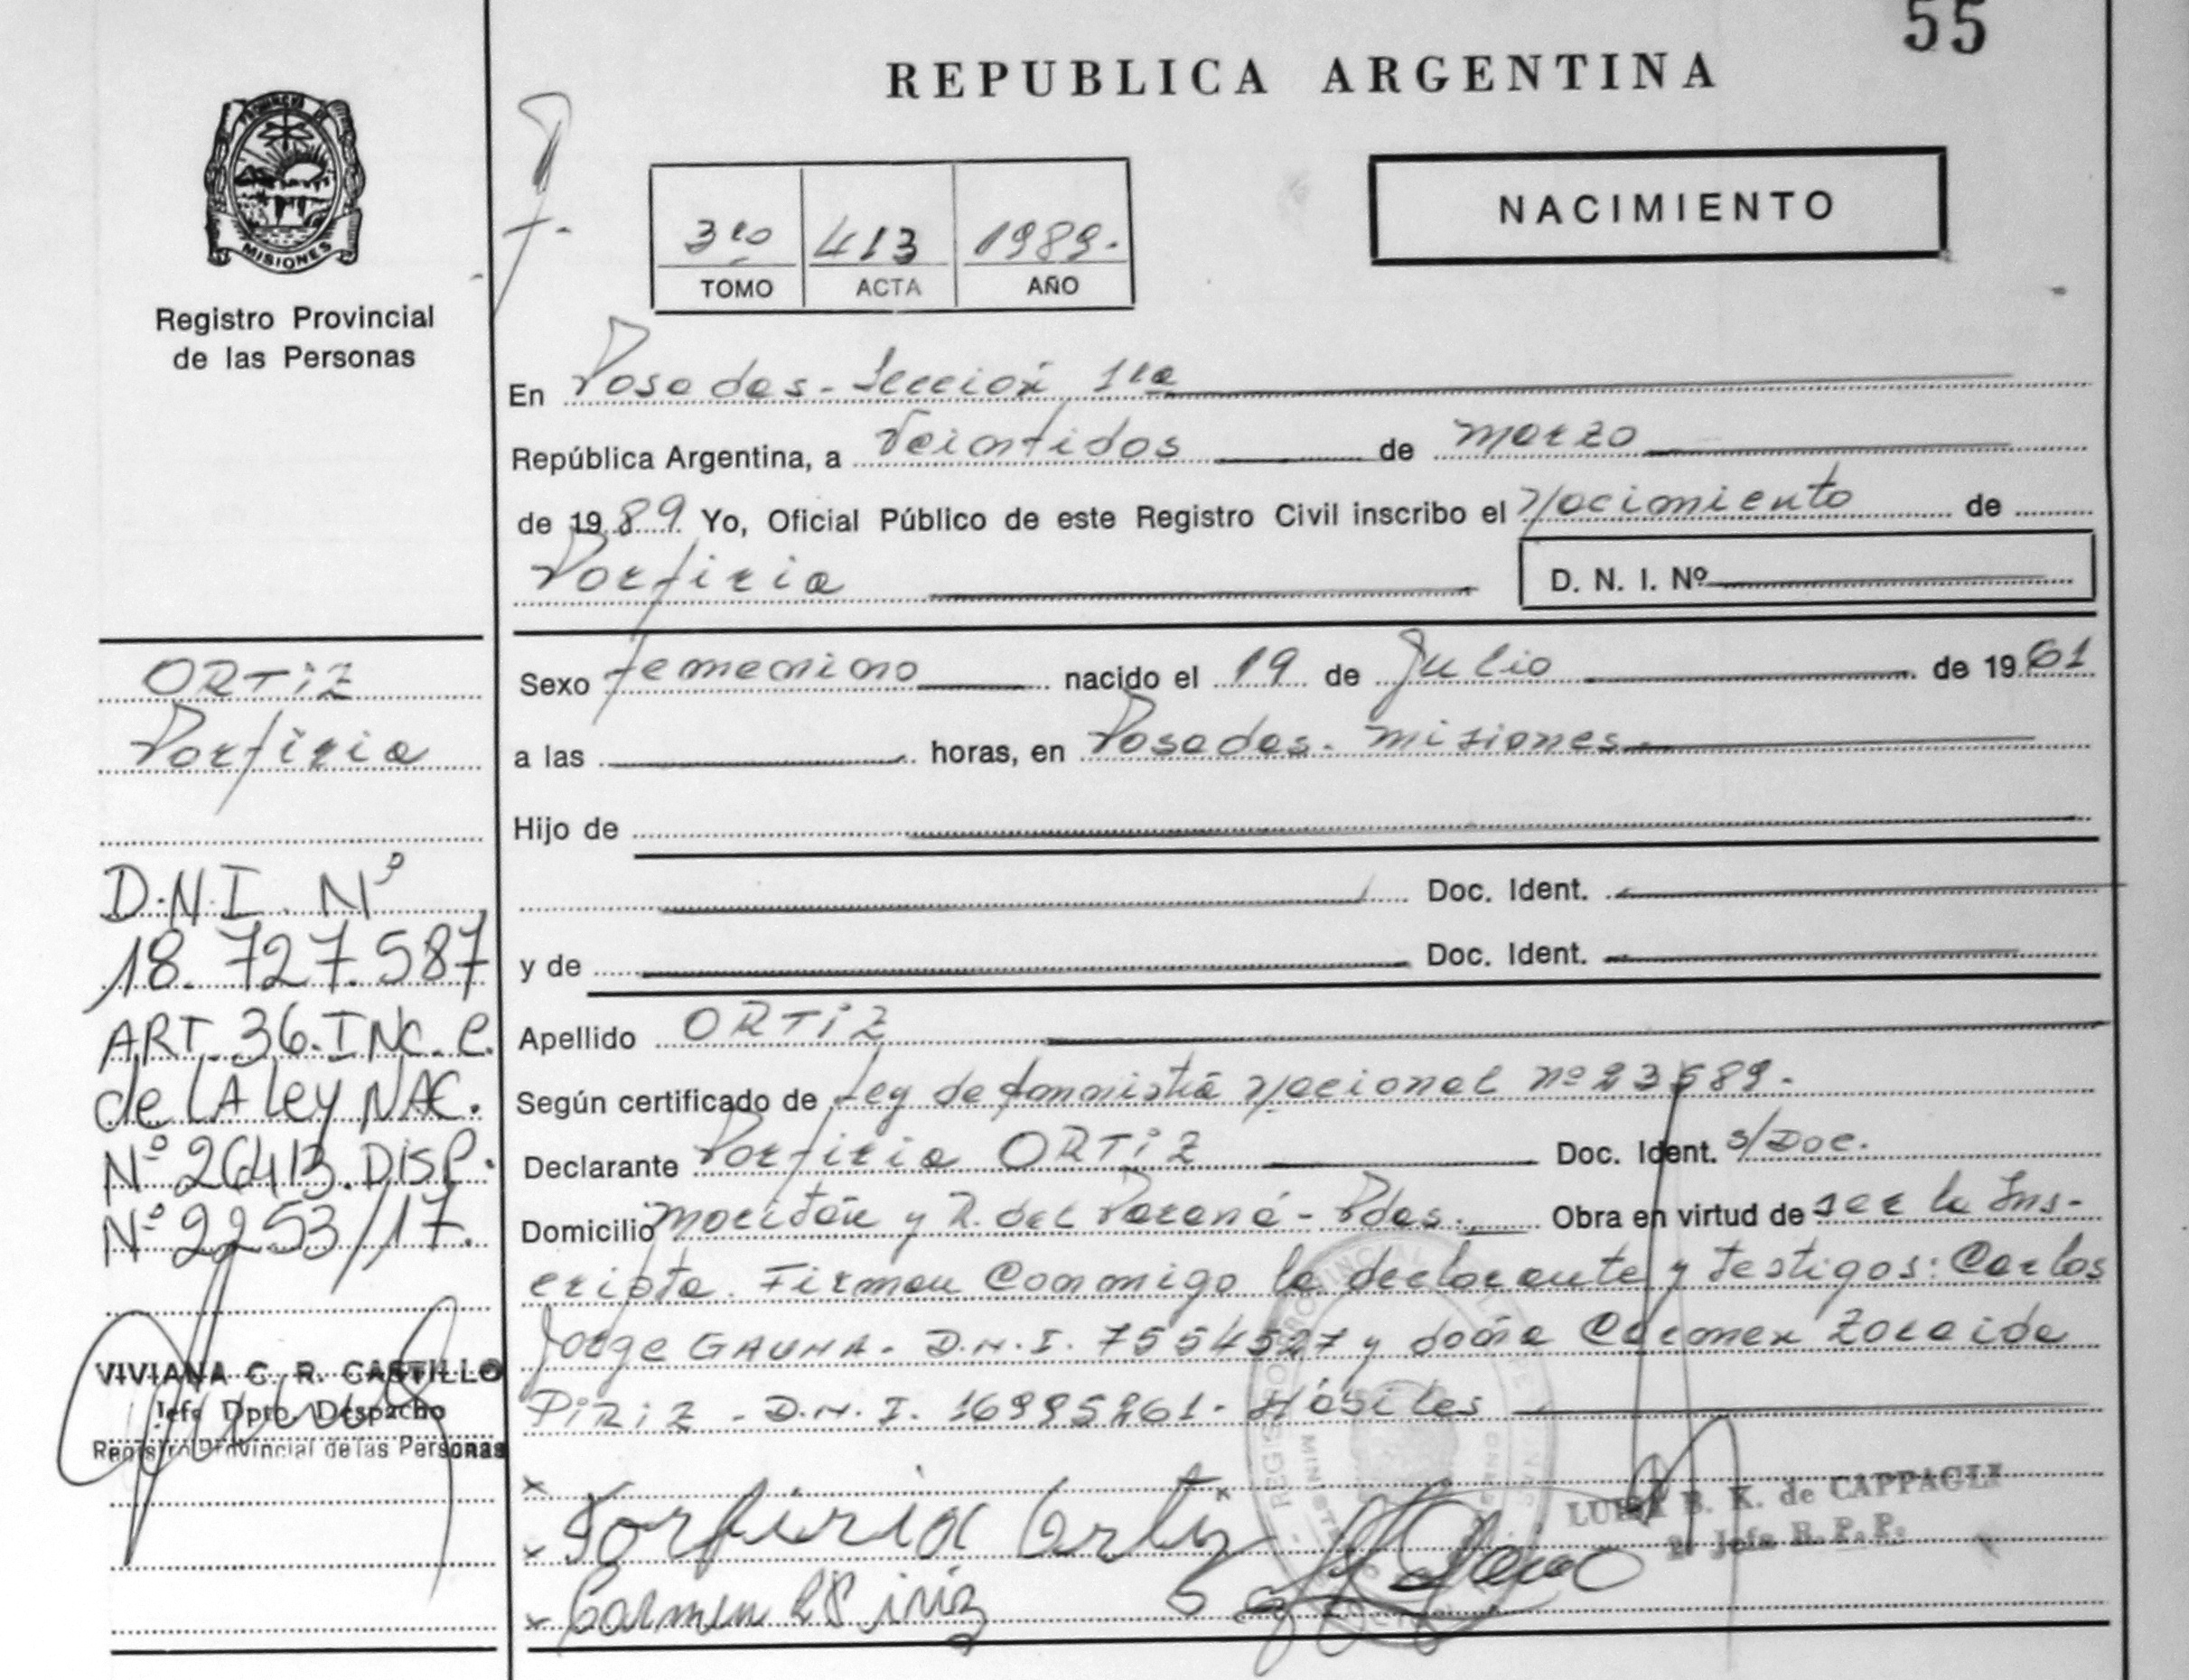 55
REPUBLICA ARGENTINA
PROVINCIA DE
MISIONES
Registro Provincial
de las Personas
NACIMIENTO
3ro 413 1989.
TOMO ACTA AÑO
En Posadas - Sección 1ra
República Argentina, a Veintidos de marzo
de 1989 Yo, Oficial Público de este Registro Civil inscribo el Nacimiento de
Porfiria D. N. I. Nº
ORTIZ
Porfiria
D.N.I. Nº
18.727.587
ART. 36. INC. e.
de LA Ley NAC.
Nº 26413. DISP.
Nº 2253/17.
VIVIANA C. R. CASTILLO
Jefe Dpto. Despacho
Registro Provincial de las Personas
Sexo femenino nacido el 19 de Julio de 1961
a las horas, en Posadas - misiones
Hijo de
Doc. Ident.
y de Doc. Ident.
Apellido ORTIZ
Según certificado de Ley de Amnistia Nacional nº 23589.
Declarante Porfiria ORTIZ Doc. Ident. s/Doc.
Domicilio y R. del Paraná - Pdas. Obra en virtud de ser la Ins-
cripta. Firman Conmigo la declarante y testigos: Carlos
Jorge GAUNA - D.N.I. 7554527 y doña Carmen Zoraida
PIRIZ - D.N.I. 16995261 - Hábiles
x
x Porfiria Ortiz x
x Carmen Z Piriz
LUISA B. K. de CAPPAGLI
2º Jefa R. P. P.